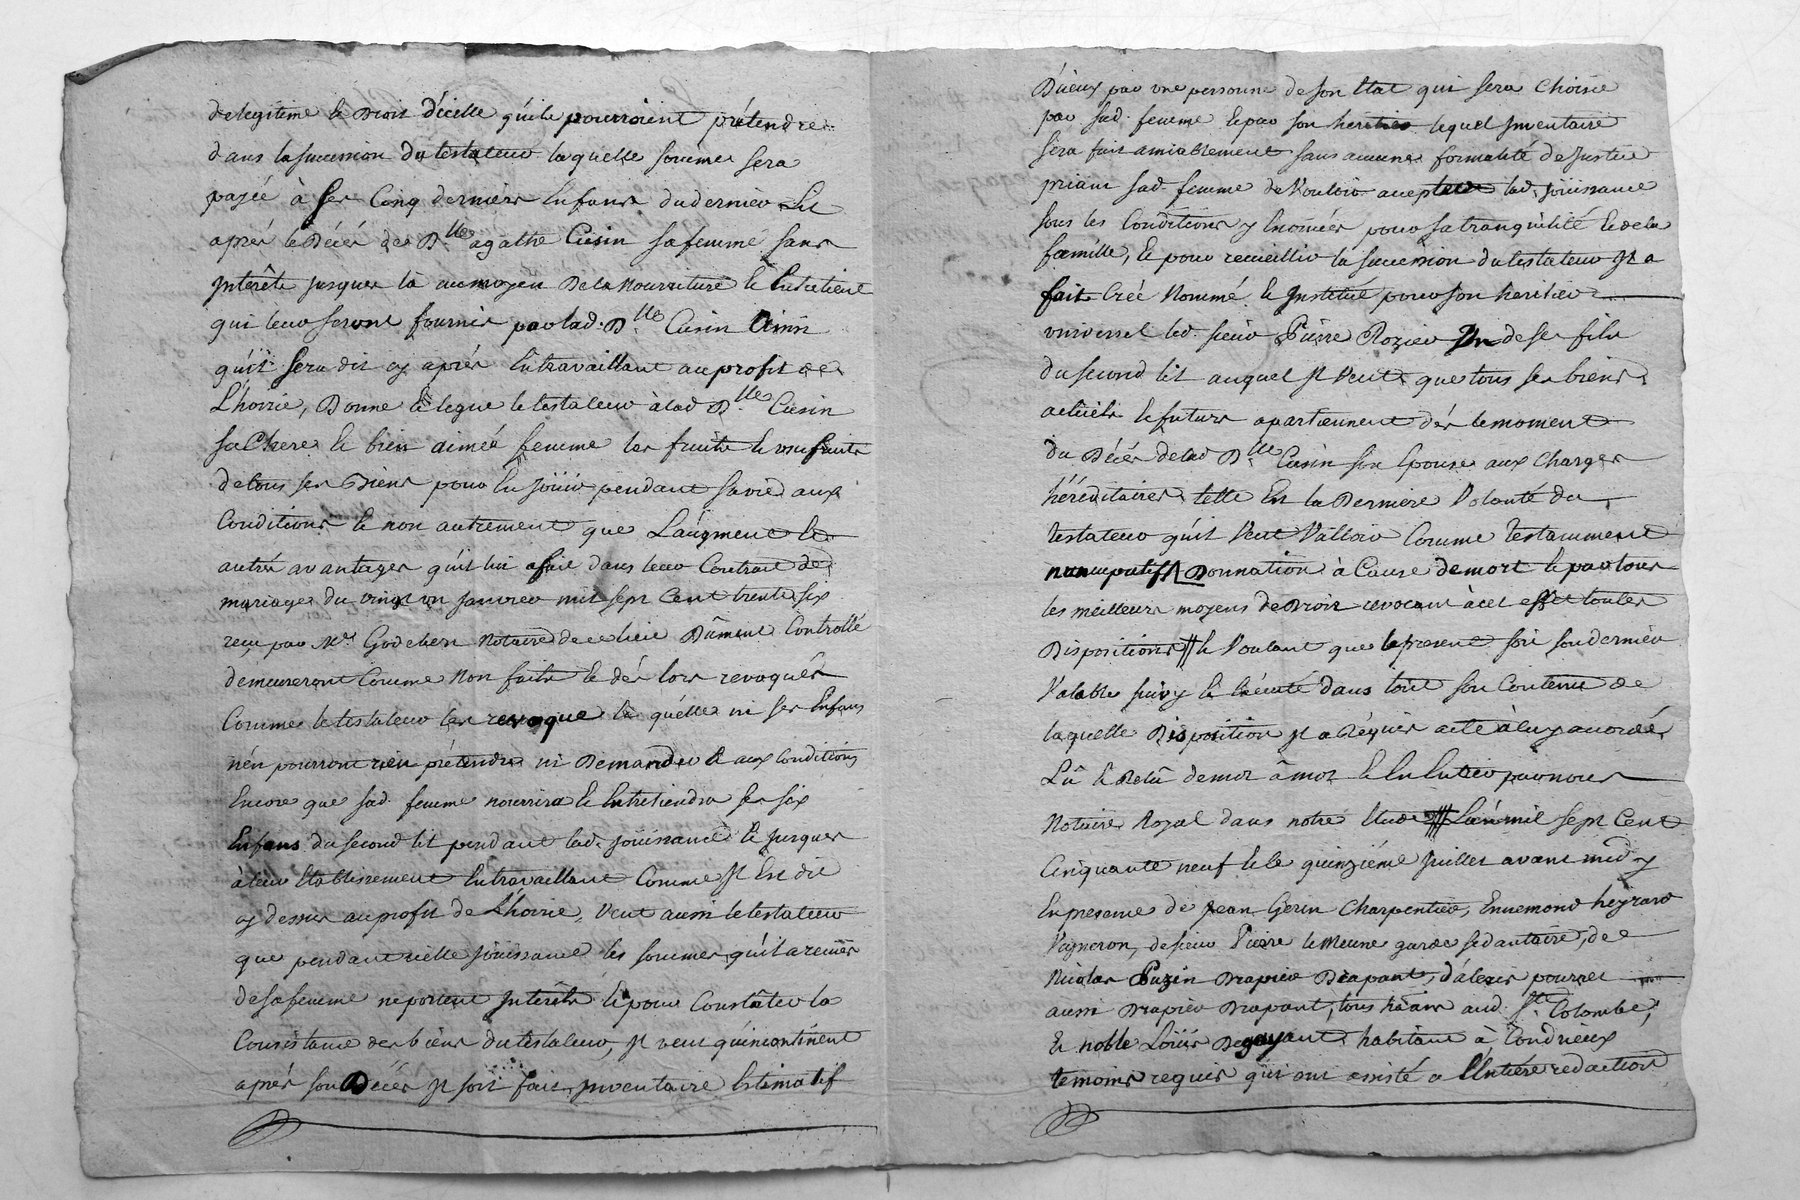 delegitime le Droit d'icelle qu'ils pourroient prétendre
dans la succession du testateur laquelle somme sera
payée à ses Cinq derniers Enfans du dernier Lit
aprés le Décés de D.lle agathe Cusin sa femme sans
Interêts jusques là au moyen De la Nourriture & Entretient
qui leur seront fournis par lad. D.lle Cusin Ainsi
qu'il sera dit cy aprés En travaillant au profit de
L'hoirie, Donne & legue le testateur à lad D.lle Cusin
sa Chere & bien aimée femme les fruits & usufruits
de tous ses Biens pour En joüir pendant sa vie aux
Conditions & non autrement que L'augment &
autres avantages qu'il lui a fait dans leur Contract de
mariage du vingt un janvier mil sept Cent trente six
reçu par M.e Godebert Notaire de ce lieu Dûment Controllé
demeureront Comme Non faits & dés lors revoqués
Comme le testateur les revoque & qu'elle ni ses Enfans
n'en pourront rien prétendre ni Demander & aux Conditions
Encore que sad. femme nourrira & Entretiendra ses six
Enfans du second lit pendant lad. joüissance & jusques
à leur Etablissement En travaillant Comme Il Est dit
cy dessus au profit de L'hoirie, Veut aussi le testateur
que pendant icelle joüissance les sommes qu'il a reçües
de sa femme ne portent Interêts & pour Constâter la
Consistance des biens du testateur, Il veut qu'incontinent
aprés son Décés Il soit fait Inventaire Estimatif
D'iceux par une personne de son Etat qui sera Choisie
par sad. femme & par son heritier lequel Inventaire
sera fait amiablement sans aucune formalité de Justice
priant sad. femme de Vouloir accepter lad. joüissance
sous les Conditions y Enoncées pour sa tranquilité & de la
famille, & pour recueillir la succession du testateur Il a
fait Créé Nommé & Institué pour son heritier
universel led. sieur Pierre Rozier Un de ses fils
du second lit auquel Il Veut que tous ses biens
actuels & futurs apartiennent dés le moment
du Décés de lad D.lle Cusin son Epouse aux Charges
héréditaires telle Est la Derniere Volonté du
testateur qu'il Veut Valloir Comme testamment
nuncupatif Donnation à Cause de mort & par tous
les meilleurs moyens de Droit revocant à cet effet toutes
Dispositions & Voulant que le présent soit son dernier
Valable suivy & éxécuté dans tout son Contenu de
laquelle Disposition Il a Réquis acte à luy accordé,
Lû & Relû de mot à mot & En Entier par nous
Notaire Royal dans notre Etude L'an mil sept Cent
Cinquante neuf & le quinziéme Juillet avant midy
En presence de Jean Gerin Charpentier, Ennemond heyrard
Vigneron, de sieur Pierre le Meune garde sedantaire, de
Nicolas Puzin Drapier Drapant, d'alexis pourret
aussi Drapier Drapant, tous hâans aud. S.te Colombe,
& noble Loüis Degayant habitant à Condrieux
temoins requis qui ont assisté a l'Entiére redaction